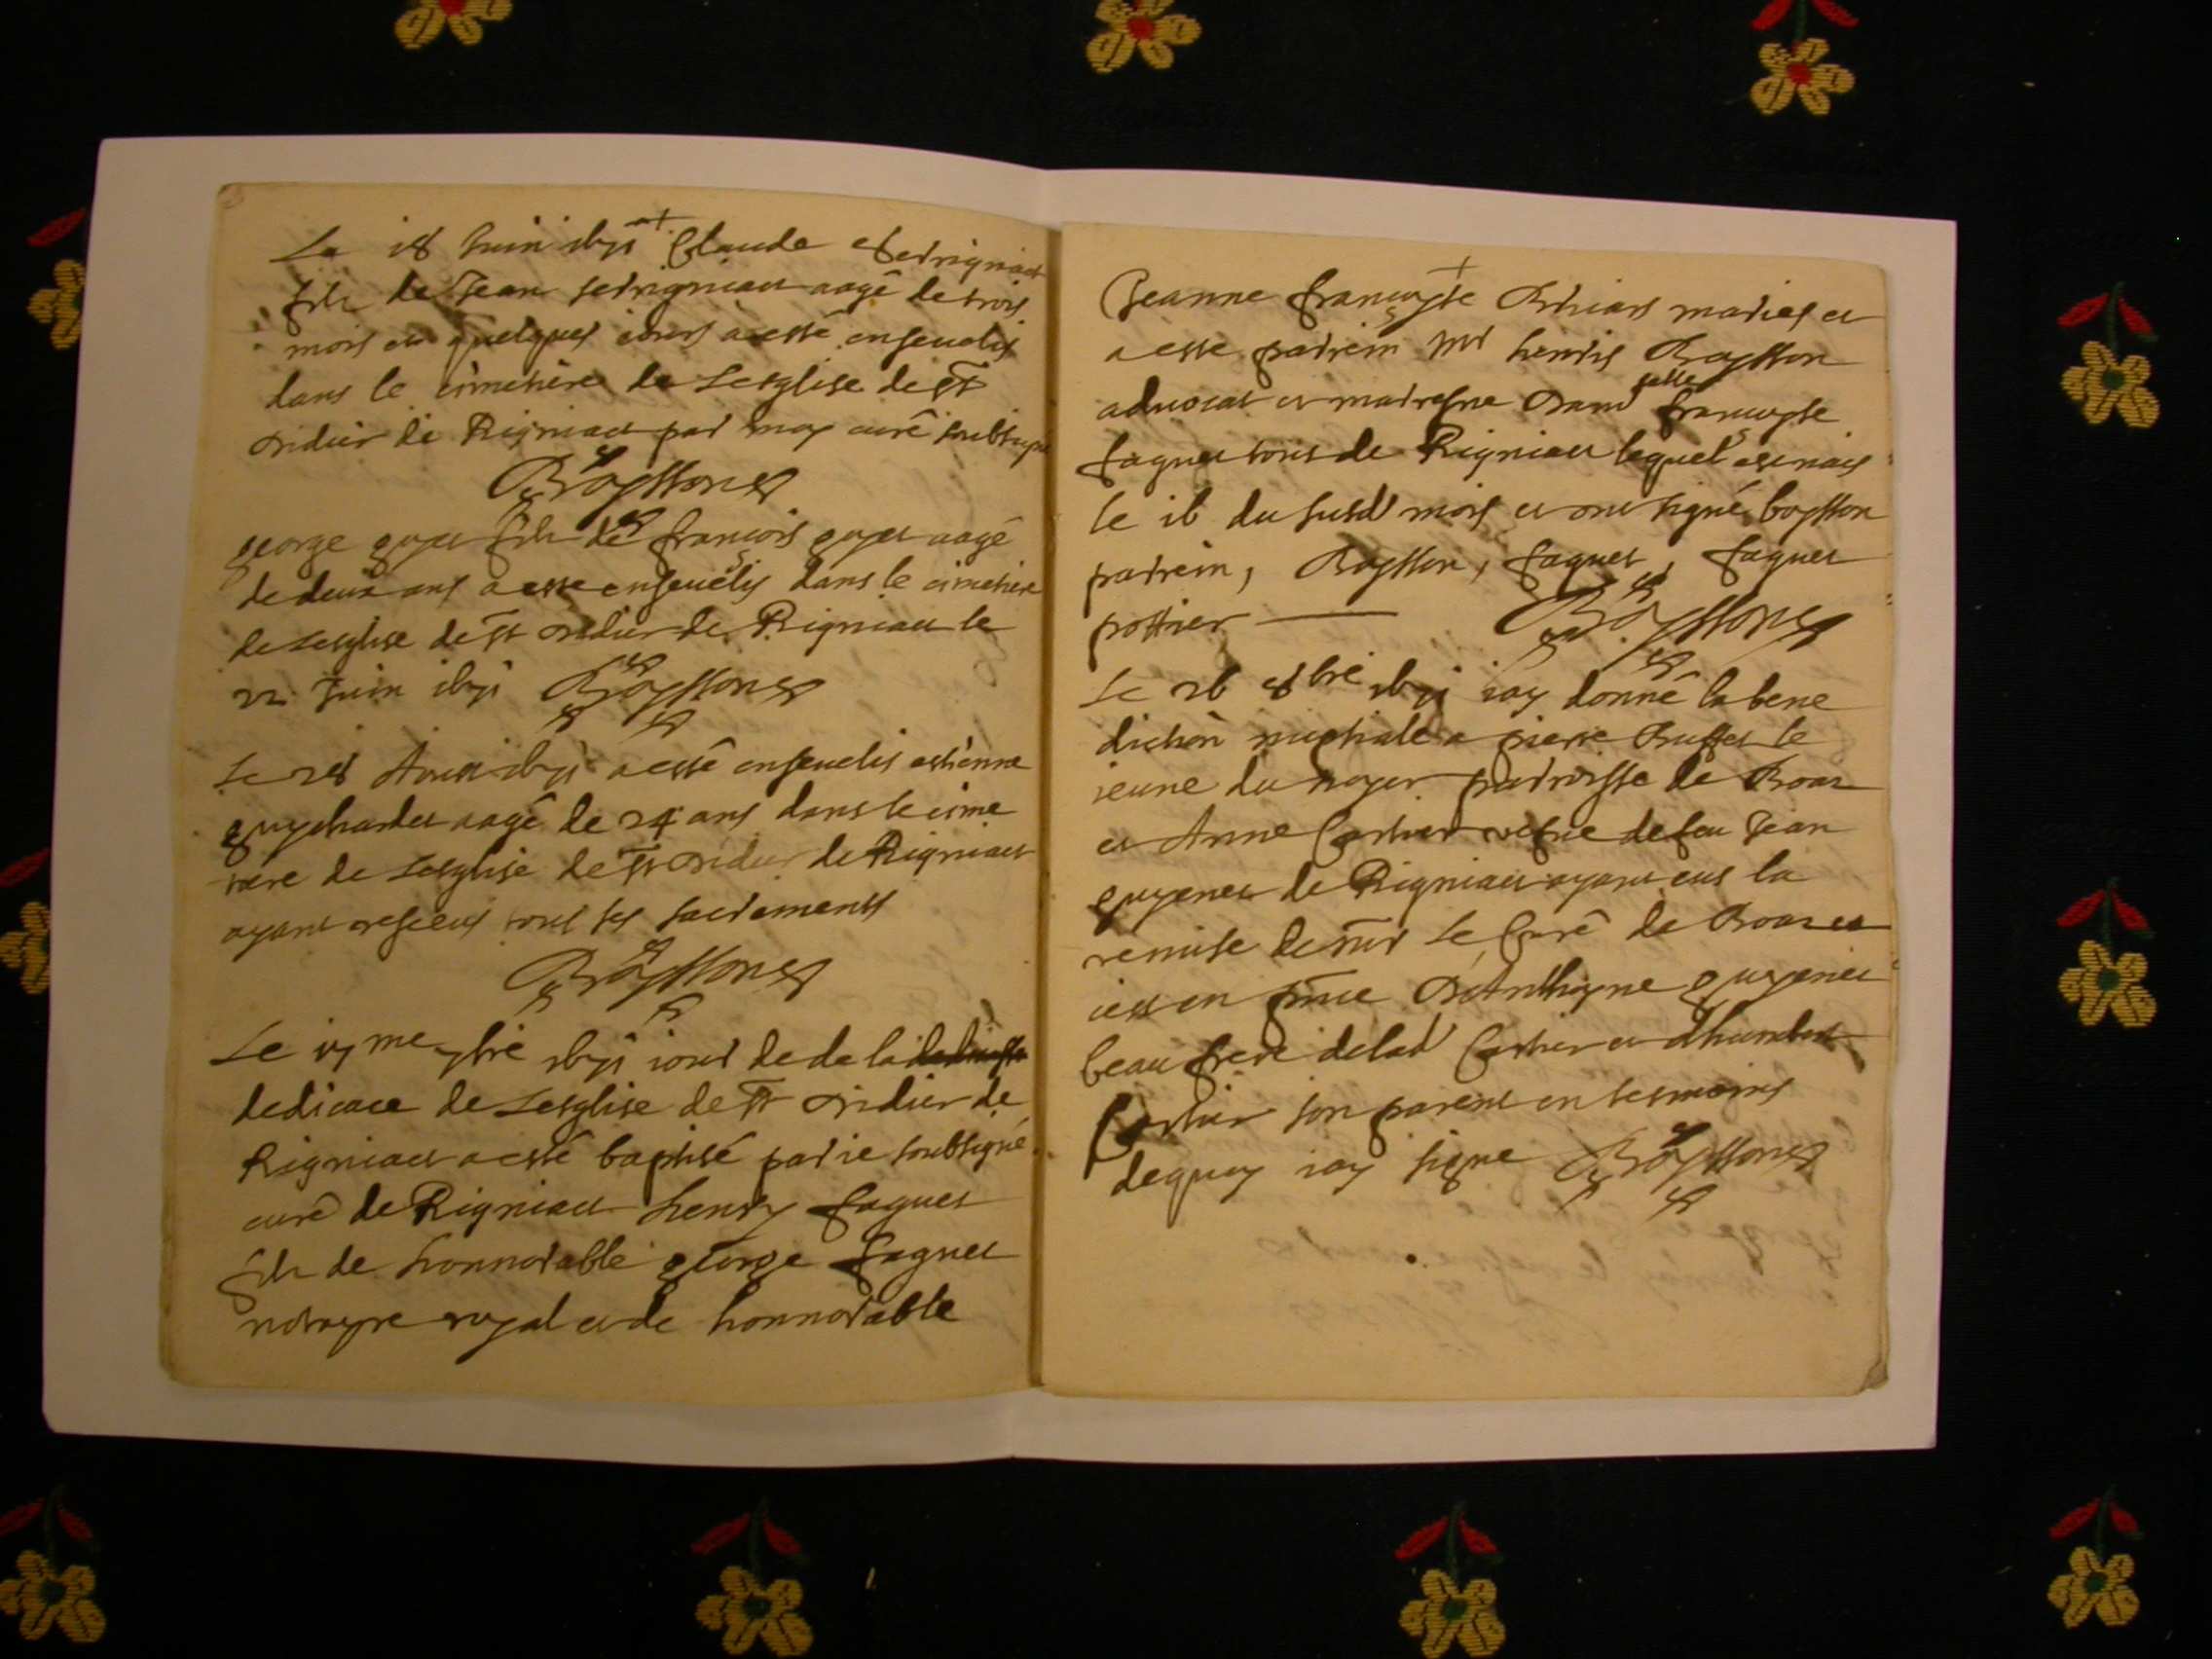 Le 18 Juin
Claude
fils de Jean aagé de trois
mois et quelques iours a esté enseuelis
dans le cimetiere de Lesglise de St
Didier de Rigniaer par moy curé soubsigné
Boyssone
george guyer fils de françois guyer aagé
de deux ans a esté enseuelis dans le cimetiere
de Lesglise de St Didier de Rigniaer le
22 Juin Boyssone
Le 28 a esté enseuelis estienne
aagé de 24 ans dans le cime
tiere de Lesglise de St Didier de Rigniaer
ayant receus tous ses sacrements
Boyssone
Le me 7bre iour de de la
dedicace de Lesglise de St Didier de
Rigniaer a esté baptisé par ie soubsigné
curé de Rigniaer henry faguer
fils de honnorable george faguer
notayre royal et de honnorable
Jeanne françoyse mariés et
a esté parrein Mr henris Boysson
aduocat et marresne françoyse
faguer tous de Rigniaer lequel est nais
le 16 du susd mois et ont signé boysson
parrein, Boysson, faguer, faguer
pottier Boyssone
Le 26 8bre iay donné la bene
diction nuptiale a pierre Buffet le
ieune du noyer parroisse de Boaz
et Anne Cartier vefue de feu Jean
de Rigniaer ayant eus la
remise de mr Le Curé de Boaz et
ce en pnce DAnthoyne
beau frere de lad Cartier et dhumbert
Cartier son parent en tesmoins
dequoy iay signé Boyssone